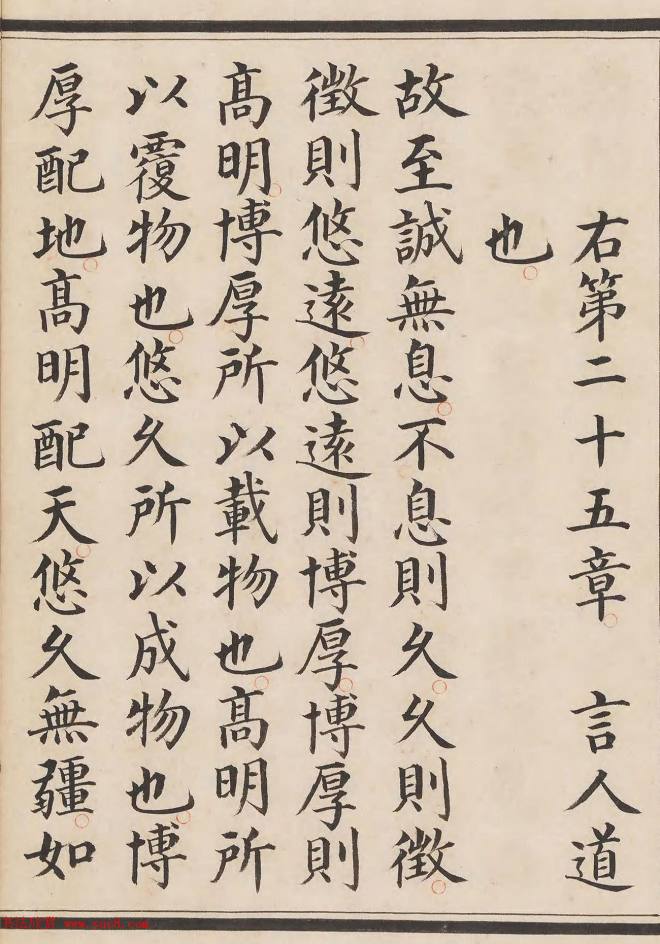 右第二十五章 言人道
也
故至誠無息不息則久久則徵
徵則悠遠悠遠則博厚博厚則
高明博厚所以載物也高明所
以覆物也悠久所以成物也博
厚配地高明配天悠久無疆如